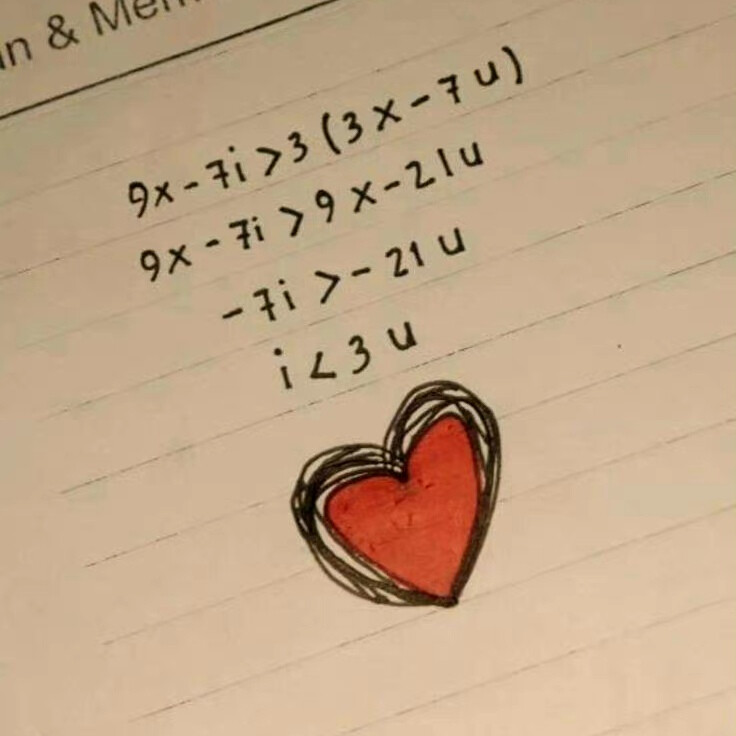 & Mem
9x-7i>3(3x-7u)
9x-7i>9x-21u
-7i>-21u
i<3u